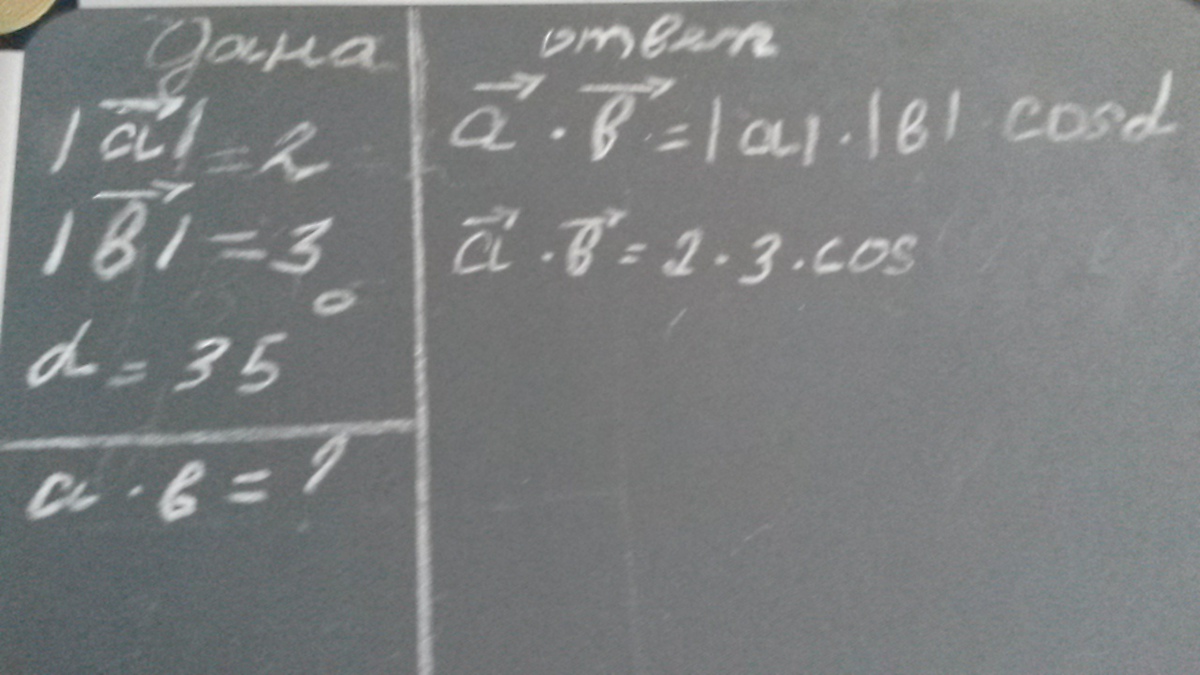 дана
|a⃗| = 2
|в⃗| = 3
α = 35°
a · в = ?
ответ
a⃗ · в⃗ = |a| · |в| cosα
a⃗ · в⃗ = 2 · 3 · cos